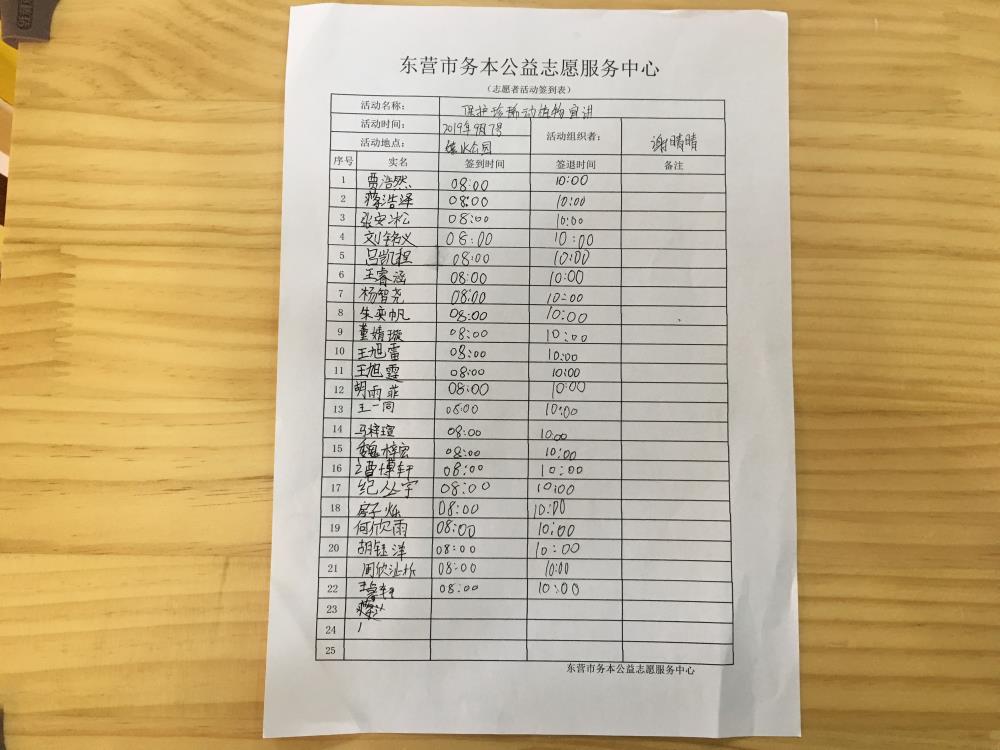 东营市务本公益志愿服务中心
(志愿者活动签到表)
活动名称: 保护珍稀动植物宣讲
活动时间: 2019年9月7号 活动组织者: 谢晴晴
活动地点: 公园
序号 实名 签到时间 签退时间 备注
1 贾浩然 08:00 10:00
2 蒋浩泽 08:00 10:00
3 张安冰 08:00 10:00
4 刘铭义 08:00 10:00
5 吕凯程 08:00 10:00
6 王睿涵 08:00 10:00
7 杨智尧 08:00 10:00
8 朱奕帆 08:00 10:00
9 董婧璇 08:00 10:00
10 王旭雷 08:00 10:00
11 王旭霆 08:00 10:00
12 胡雨菲 08:00 10:00
13 王一同 08:00 10:00
14 马梓瑄 08:00 10:00
15 魏梓宏 08:00 10:00
16 曹博轩 08:00 10:00
17 纪丛宇 08:00 10:00
18 房子烁 08:00 10:00
19 何欣雨 08:00 10:00
20 胡钰洋 08:00 10:00
21 周欣 08:00 10:00
22 08:00 10:00
23
24
25
东营市务本公益志愿服务中心